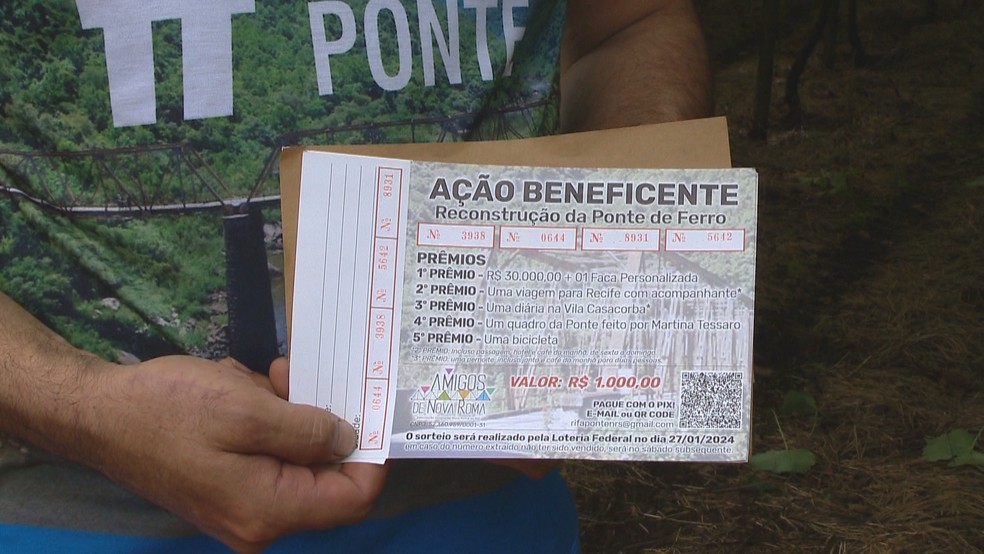 PONTE
AÇÃO BENEFICENTE
Reconstrução da Ponte de Ferro
Nº 3938 Nº 0644 Nº 8931 Nº 5642
PRÊMIOS
1º PRÊMIO - R$ 30.000,00 + 01 Faca Personalizada
2º PRÊMIO - Uma viagem para Recife com acompanhante*
3º PRÊMIO - Uma diária na Vila Casacorba*
4º PRÊMIO - Um quadro da Ponte feito por Martina Tessaro
5º PRÊMIO - Uma bicicleta
*2º PRÊMIO: incluso passagem, hotel e café da manhã, de sexta a domingo.
*3º PRÊMIO: uma pernoite, incluso janta e café da manhã para duas pessoas.
AMIGOS
DE NOVA ROMA
VALOR: R$ 1.000,00
PAGUE COM O PIX!
E-MAIL ou QR CODE
rifaponterrs@gmail.com
O sorteio será realizado pela Loteria Federal no dia 27/01/2024
em caso do número extraído não ter sido vendido, será no sábado subsequente.
Nº 0644 Nº 3938 Nº 5642 Nº 8931